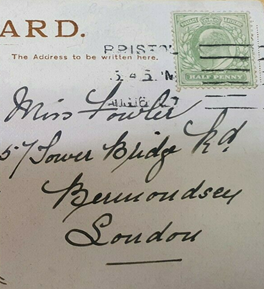 ARD.
The Address to be written here.
BRISTOL
HALF PENNY
Miss Fowler
57 Tower Bridge Rd
Bermondsey
London